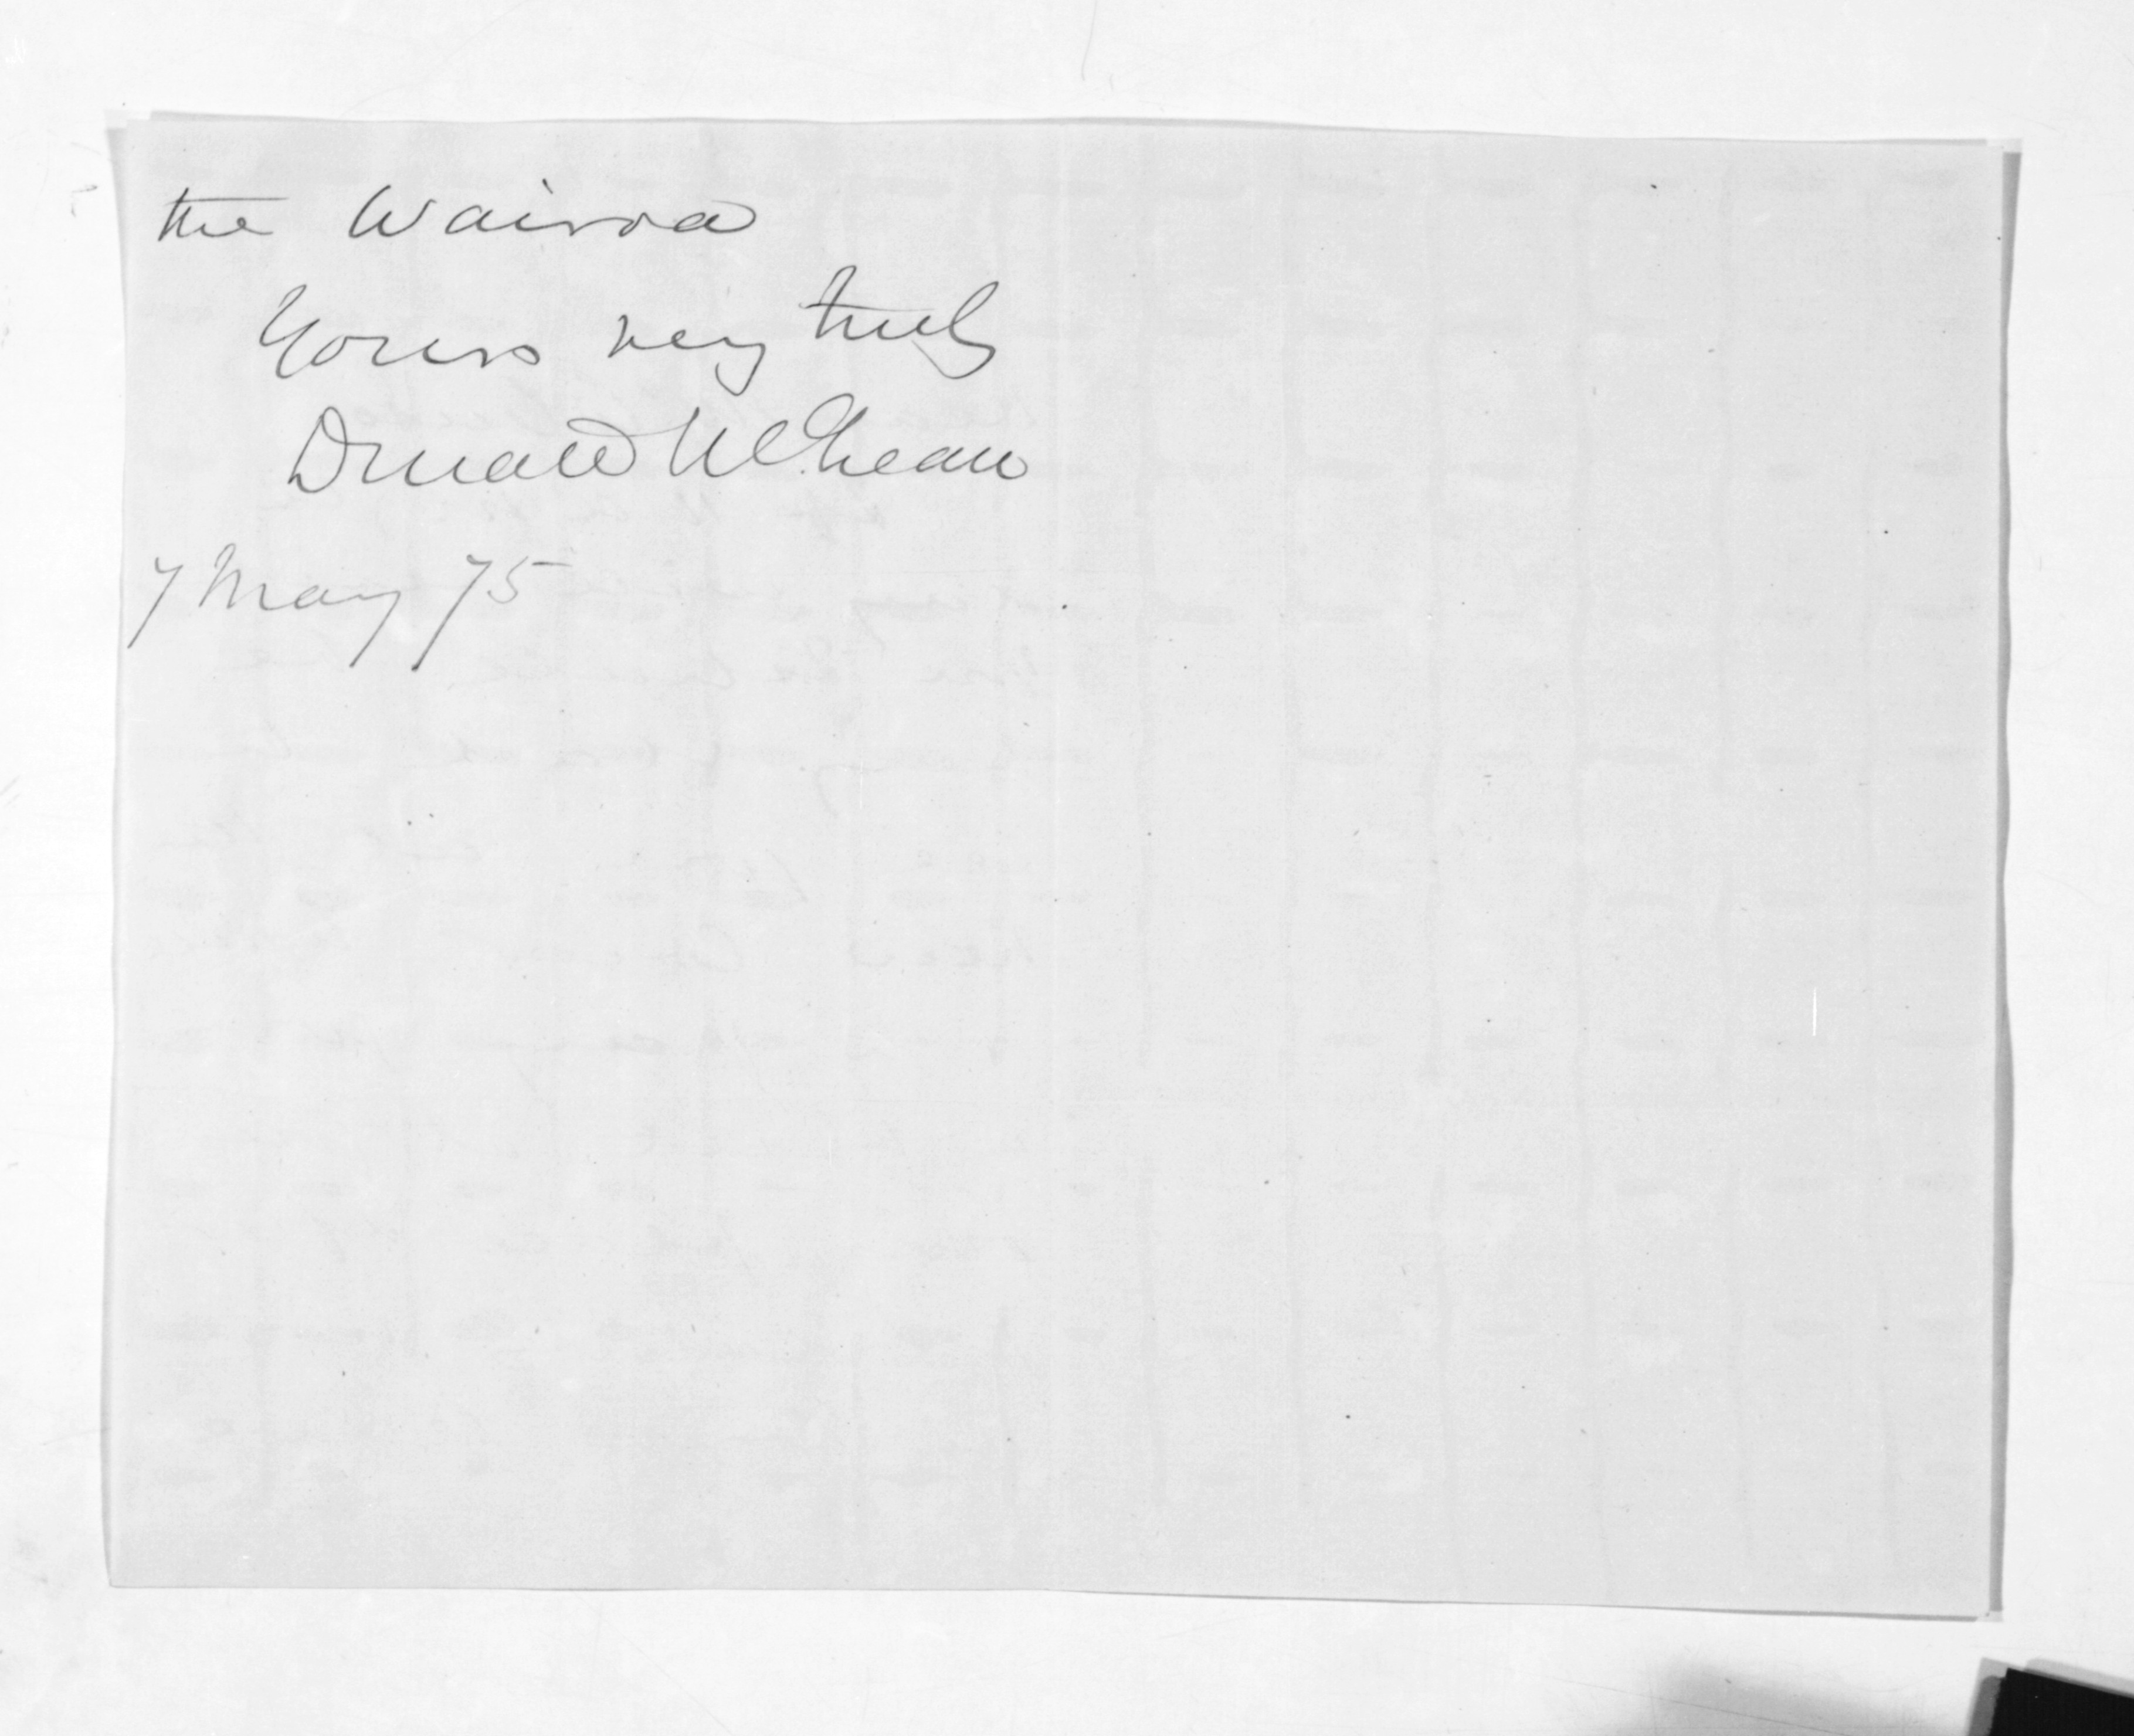 the Wairoa
Yours very truly
Donald McLean
7 May 75